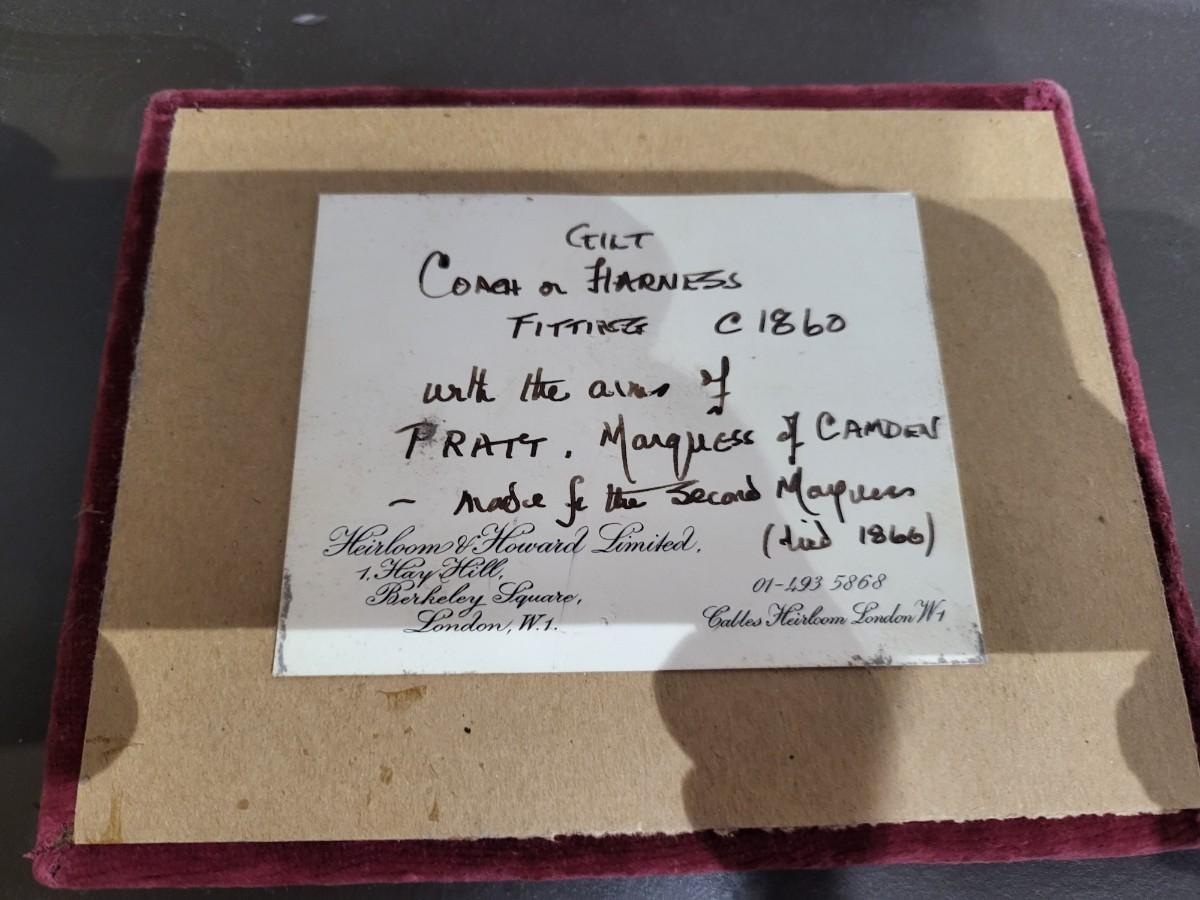 GILT
COACH or HARNESS
FITTING C 1860
with the arms of
PRATT, Marquess of CAMDEN
- made for the Second Marquess
(died 1866)
Heirloom & Howard Limited.
1, Hay Hill,
Berkeley Square,
London, W.1.
01-493 5868
Cables Heirloom London W1